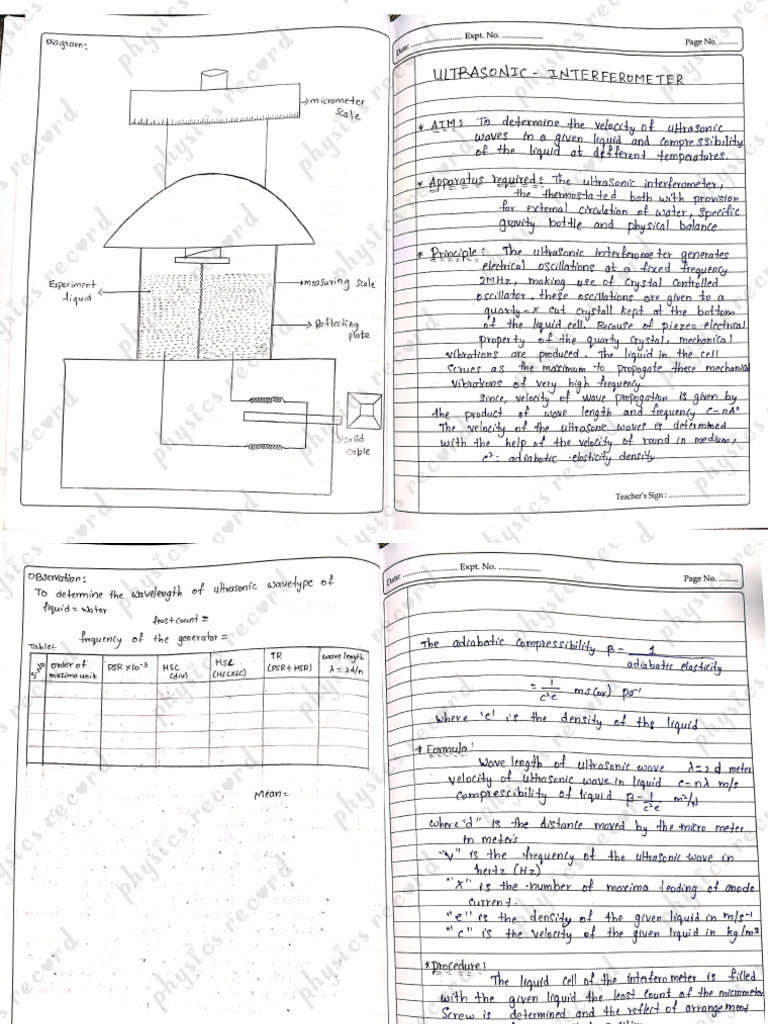 Diagram:
micrometer
scale
Experiment
liquid
measuring scale
Reflecting
plate
solid
cable
Date: Expt. No. Page No.
ULTRASONIC - INTERFEROMETER
* AIM: To determine the velocity of ultrasonic
waves in a given liquid and compressibility
of the liquid at different temperatures.
* Apparatus required: The ultrasonic interferometer,
the thermostated bath with provision
for external circulation of water, specific
gravity bottle and physical balance.
* Principle: The ultrasonic interferometer generates
electrical oscillations at a fixed frequency
2MHz, making use of crystal controlled
oscillator. these oscillations are given to a
quartz-x cut crystall kept at the bottom
of the liquid cell. Because of piezo electrical
property of the quartz crystal, mechanical
vibrations are produced. The liquid in the cell
serues as the maximum to propogate these mechanical
vibrations of very high frequency.
since, velocity of wave propogation is given by
the product of wave length and frequency
The velocity of the ultrasonic waves is determined
with the help of the velocity of round in medium,
c²= adiabatic elasticity density
Teacher's Sign :
Observation:
To determine the wavelength of ultrasonic wavetype of
liquid = water
least count =
frequency of the generator =
Table:
S.No order of maxima unit PSR×10-3 HSC (div) HSR (HSC×LC) TR (PSR+HSR) wave length λ = 2d/n
Mean=
Date: Expt. No. Page No.
The adiabatic compressibility β = 1
adiabatic elasticity
= 1
c²e
where 'e' is the density of the liquid
* Formula:
Wave length of ultrasonic wave λ=2d meter
velocity of ultrasonic wave in liquid c=nλ m/s
compressibility of liquid β= 1/c²e m²/N
where "d" is the distance moved by the micro meter
in meters
"v" is the frequency of the ultrasonic wave in
hertz (Hz)
"x" is the number of maxima leading of anode
current.
"e" is the density of the given liquid in m/s-1
"c" is the velocity of the given liquid in kg/m3
* Procedure:
The liquid cell of the interferometer is filled
with the given liquid the least count of the micrometer
Screw is determined and the reflect of arrangement
physics record